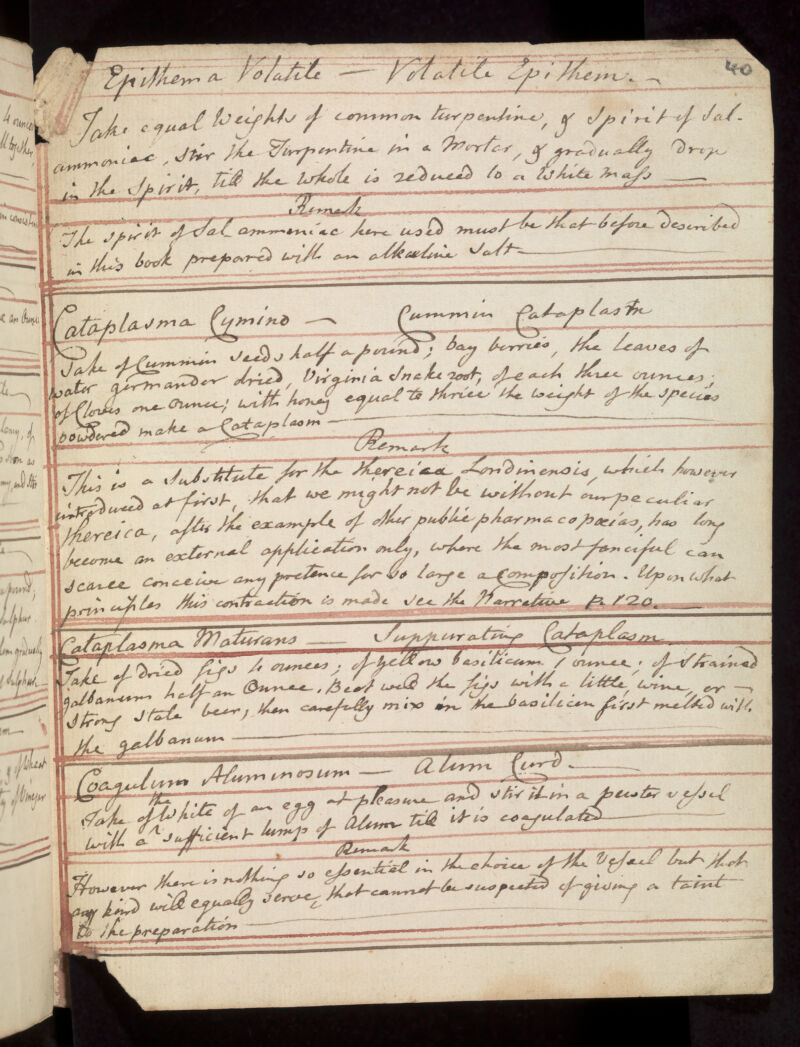 40
Epithema Volatile — Volatile Epithem. —
Take equal Weights of common turpentine, & spirit of Sal-
ammoniac, stir the Turpentine in a Mortar, & gradually drop
in the spirit, till the whole is reduced to a White Mass —
Remark
The spirit of Sal ammoniac here used must be that before described
in this book prepared with an alkaline Salt —
Cataplasma Cymino — Cummin Cataplasm
Take of Cummin seeds half a pound; bay berries, the leaves of
water germander dried, Virginia Snake root, of each three ounces;
of Cloves one ounce; with honey equal to thrice the weight of the species
powdered make a Cataplasm —
Remark
This is a Substitute for the thereica Londinensis, which however
introduced at first, that we might not be without our peculiar
thereica, after the example of other public pharmacopœias, has long
become an external application only, where the most fanciful can
scarce conceive any pretence for so large a Composition. Upon what
principles this contraction is made see the Narrative P. 120. —
Cataplasma Maturans — Suppurating Cataplasm
Take of Dried figs 4 ounces; of yellow basilicum 1 ounce; of strained
galbanum half an Ounce. Beat well the figs with a little, wine, or —
strong stale beer, then carefully mix in the basilicon first melted with
the galbanum —
Coagulum Aluminosum — Alum Curd. —
Take of the White of an egg at pleasure and stir it in a pewter vessel
with a sufficient lump of Alum till it is coagulated
Remark
However there is nothing so essential in the choice of the Vessel but that
any kind will equally serve, that cannot be suspected of giving a taint
to the preparation —
4 ounces
together,
an Ounce
pound;
Sulphur
gradually
Sulphur
of Vinegar